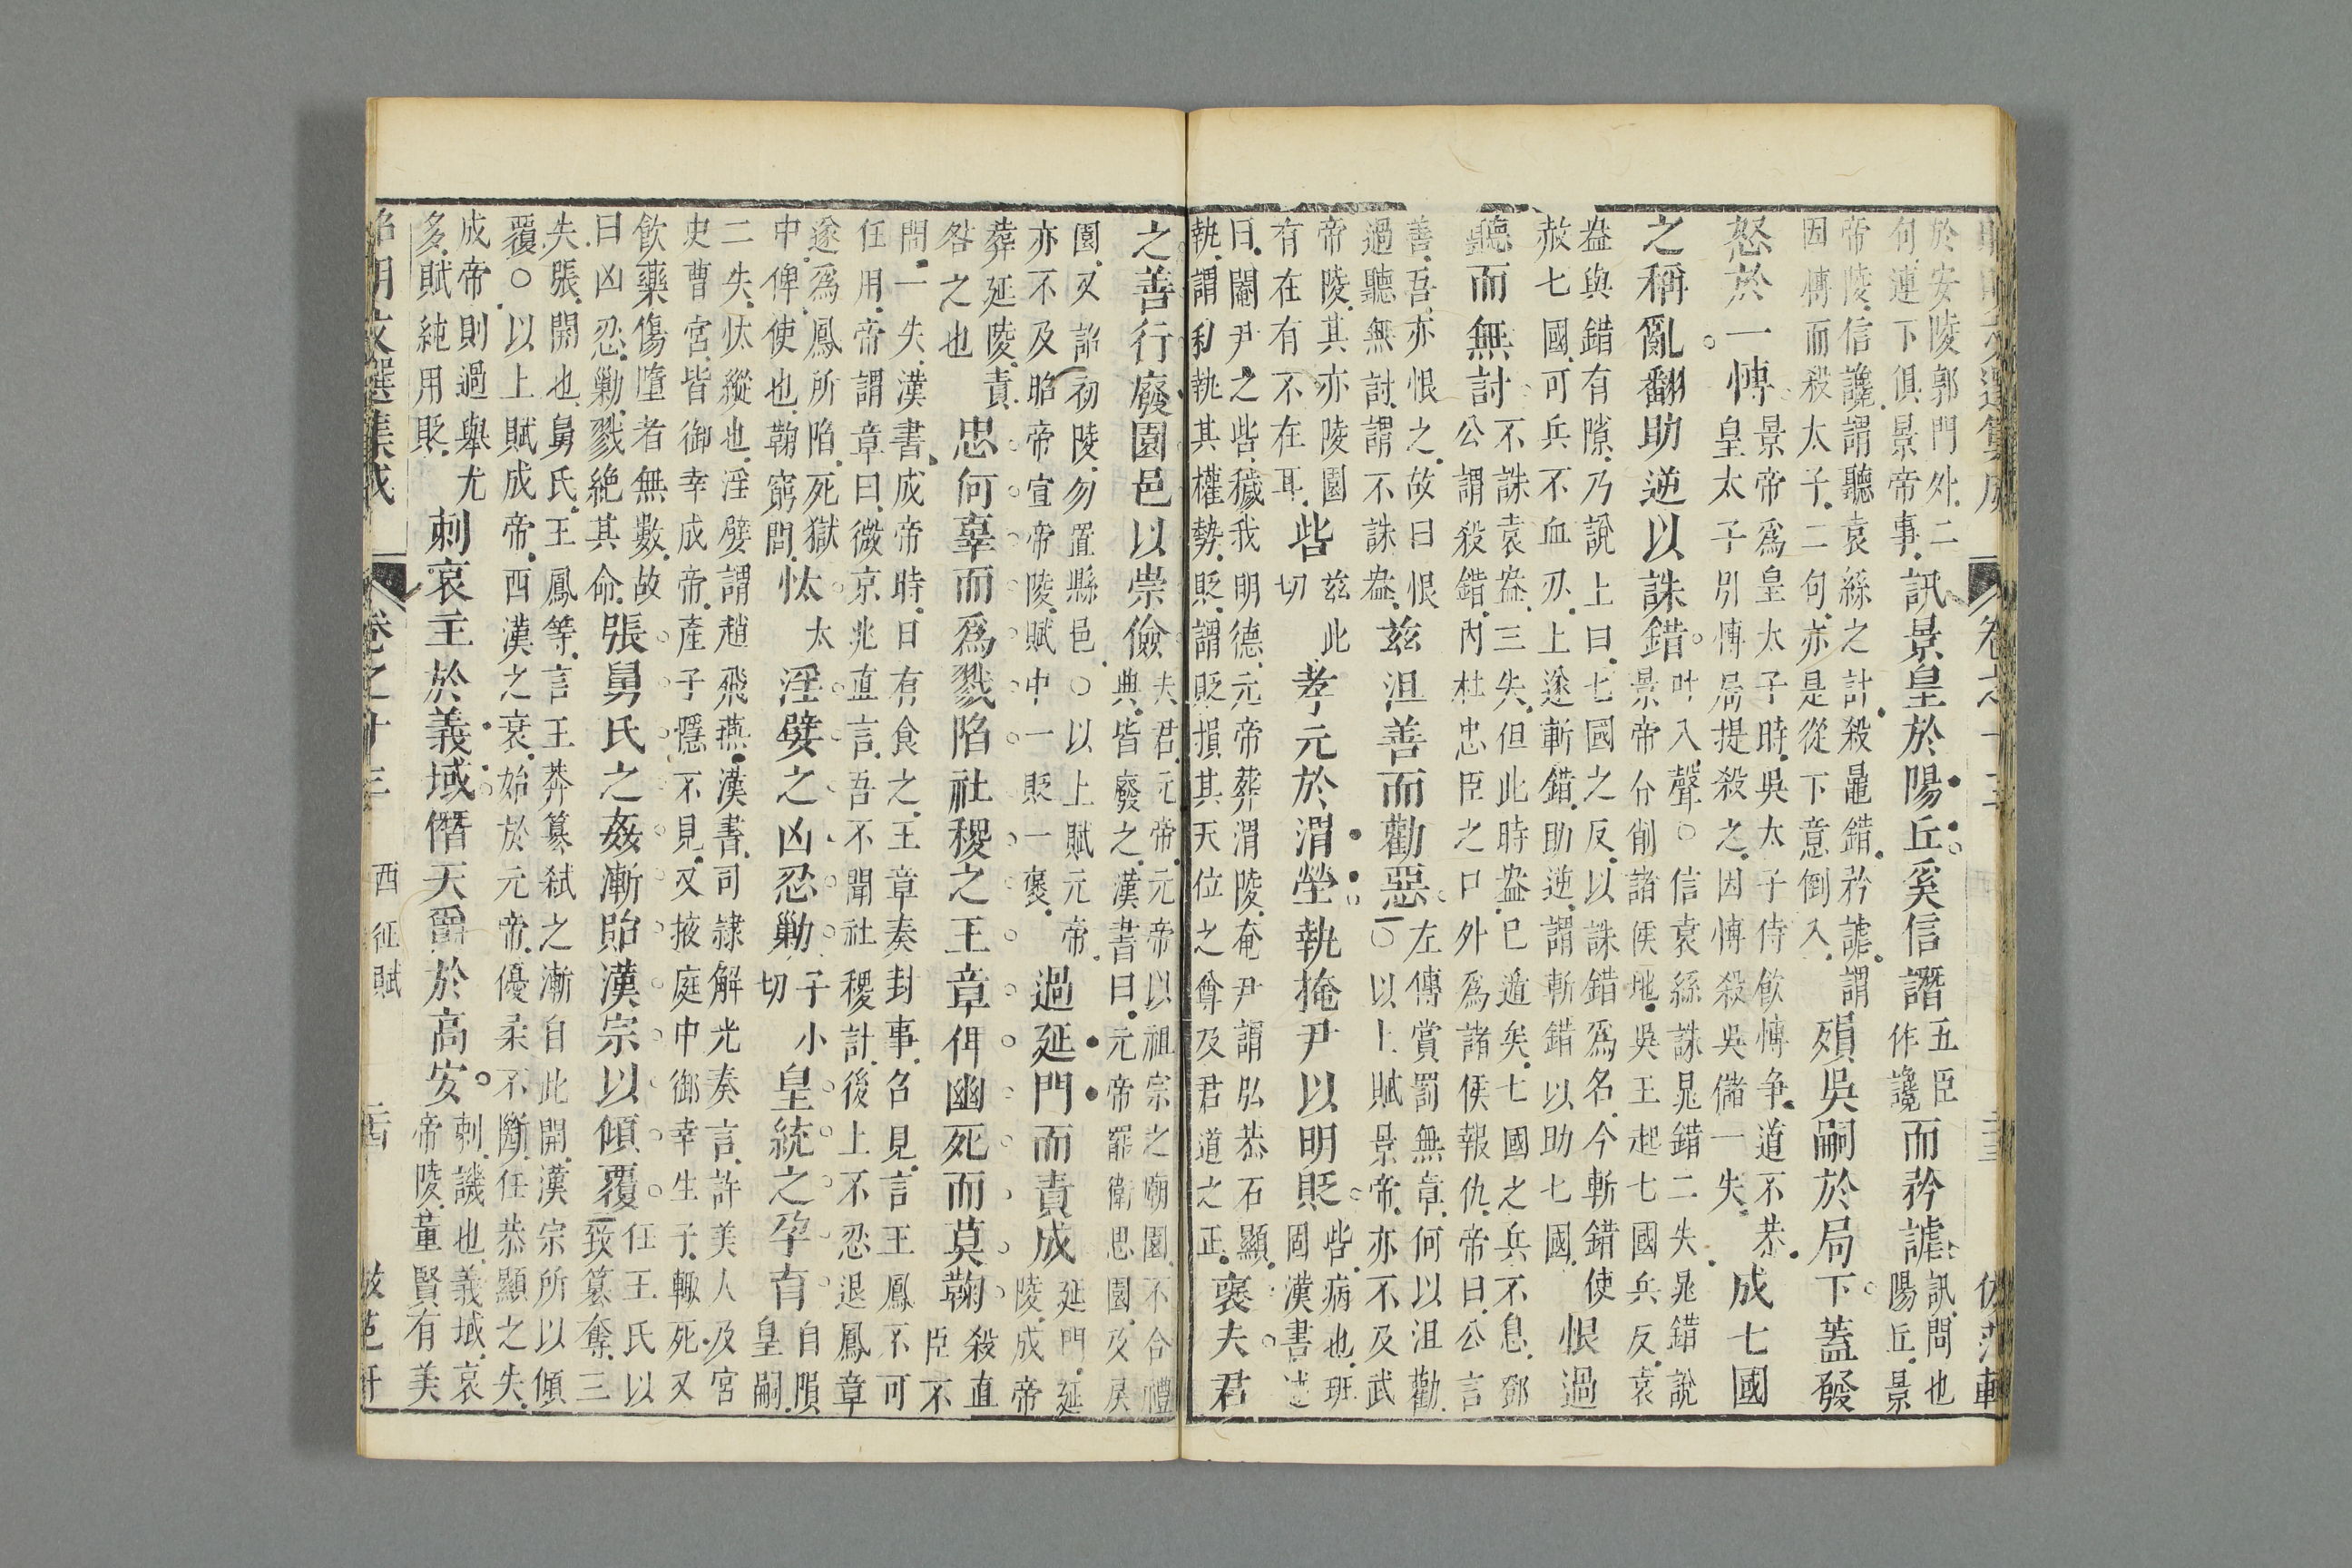 於安陵郭門外二
句連下俱景帝事訊景皇於陽丘奚信譖五臣
作讒而矜謔訊問也
陽丘景
帝陵信讒謂聽袁絲之計殺鼂錯矜謔謂
因慱而殺太子二句亦是從下意倒入殞吳嗣於局下蓋發
怒於一慱景帝爲皇太子時吳太子侍飲慱争道不恭
皇太子引慱局提殺之因慱殺吳儲一失成七國
之稱亂翻助逆以誅錯叶入聲○信袁絲誅晁錯二失晁錯說
景帝令削諸侯地吳王起七國兵反袁
盎與錯有隙乃說上曰七國之反以誅錯爲名今斬錯使
赦七國可兵不血刃上遂斬錯助逆謂斬錯以助七國恨過
聽而無討不誅袁盎三失但此時盎已遁矣七國之兵不息鄧
公謂殺錯内杜忠臣之口外爲諸侯報仇帝曰公言
善吾亦恨之故曰恨
過聽無討謂不誅盎茲沮善而勸惡左傳賞罰無章何以沮勸
○以上賦景帝亦不及武
帝陵其亦陵園
有在有不在耳呰茲此
切孝元於渭塋執掩尹以明貶呰病也班
固漢書述
曰閹尹之呰穢我明德元帝葬渭陵奄尹謂弘恭石顯
執謂私執其權勢貶謂貶損其天位之尊及君道之正襃夫君
之善行廢園邑以崇儉夫君元帝元帝以祖宗之廟園不合禮
典皆廢之漢書曰元帝罷衛思園及戾
園又詔初陵勿置縣邑○以上賦元帝
亦不及昭帝宣帝陵賦中一貶一襃過延門而責成延門延
陵成帝
葬延陵責
咎之也忠何辜而爲戮陷社稷之王章俾幽死而莫鞠殺直
臣不
問一失漢書成帝時日有食之王章奏封事召見言王鳳不可
任用帝謂章曰微京兆直言吾不聞社稷計後上不忍退鳳章
遂爲鳳所陷死獄
中俾使也鞠窮問忲太淫嬖之凶忍勦子小
切皇統之孕育自隕
皇嗣
二失忲縱也淫嬖謂趙飛燕漢書司隸解光奏言許美人及宮
史曹宮皆御幸成帝產子隱不見又掖庭中御幸生子輙死又
飲藥傷墮者無數故
曰凶忍勦戮絕其命張舅氏之姦漸貽漢宗以傾覆任王氏以
致篡奪三
失張開也舅氏王鳳等言王莽篡弑之漸自此開漢宗所以傾
覆○以上賦成帝西漢之衰始於元帝優柔不斷任恭顯之失
成帝則過舉尤
多賦純用貶刺哀主於義域僭天爵於高安刺譏也義域哀
帝陵董賢有美
昭明文選集成
卷之十三
西征賦